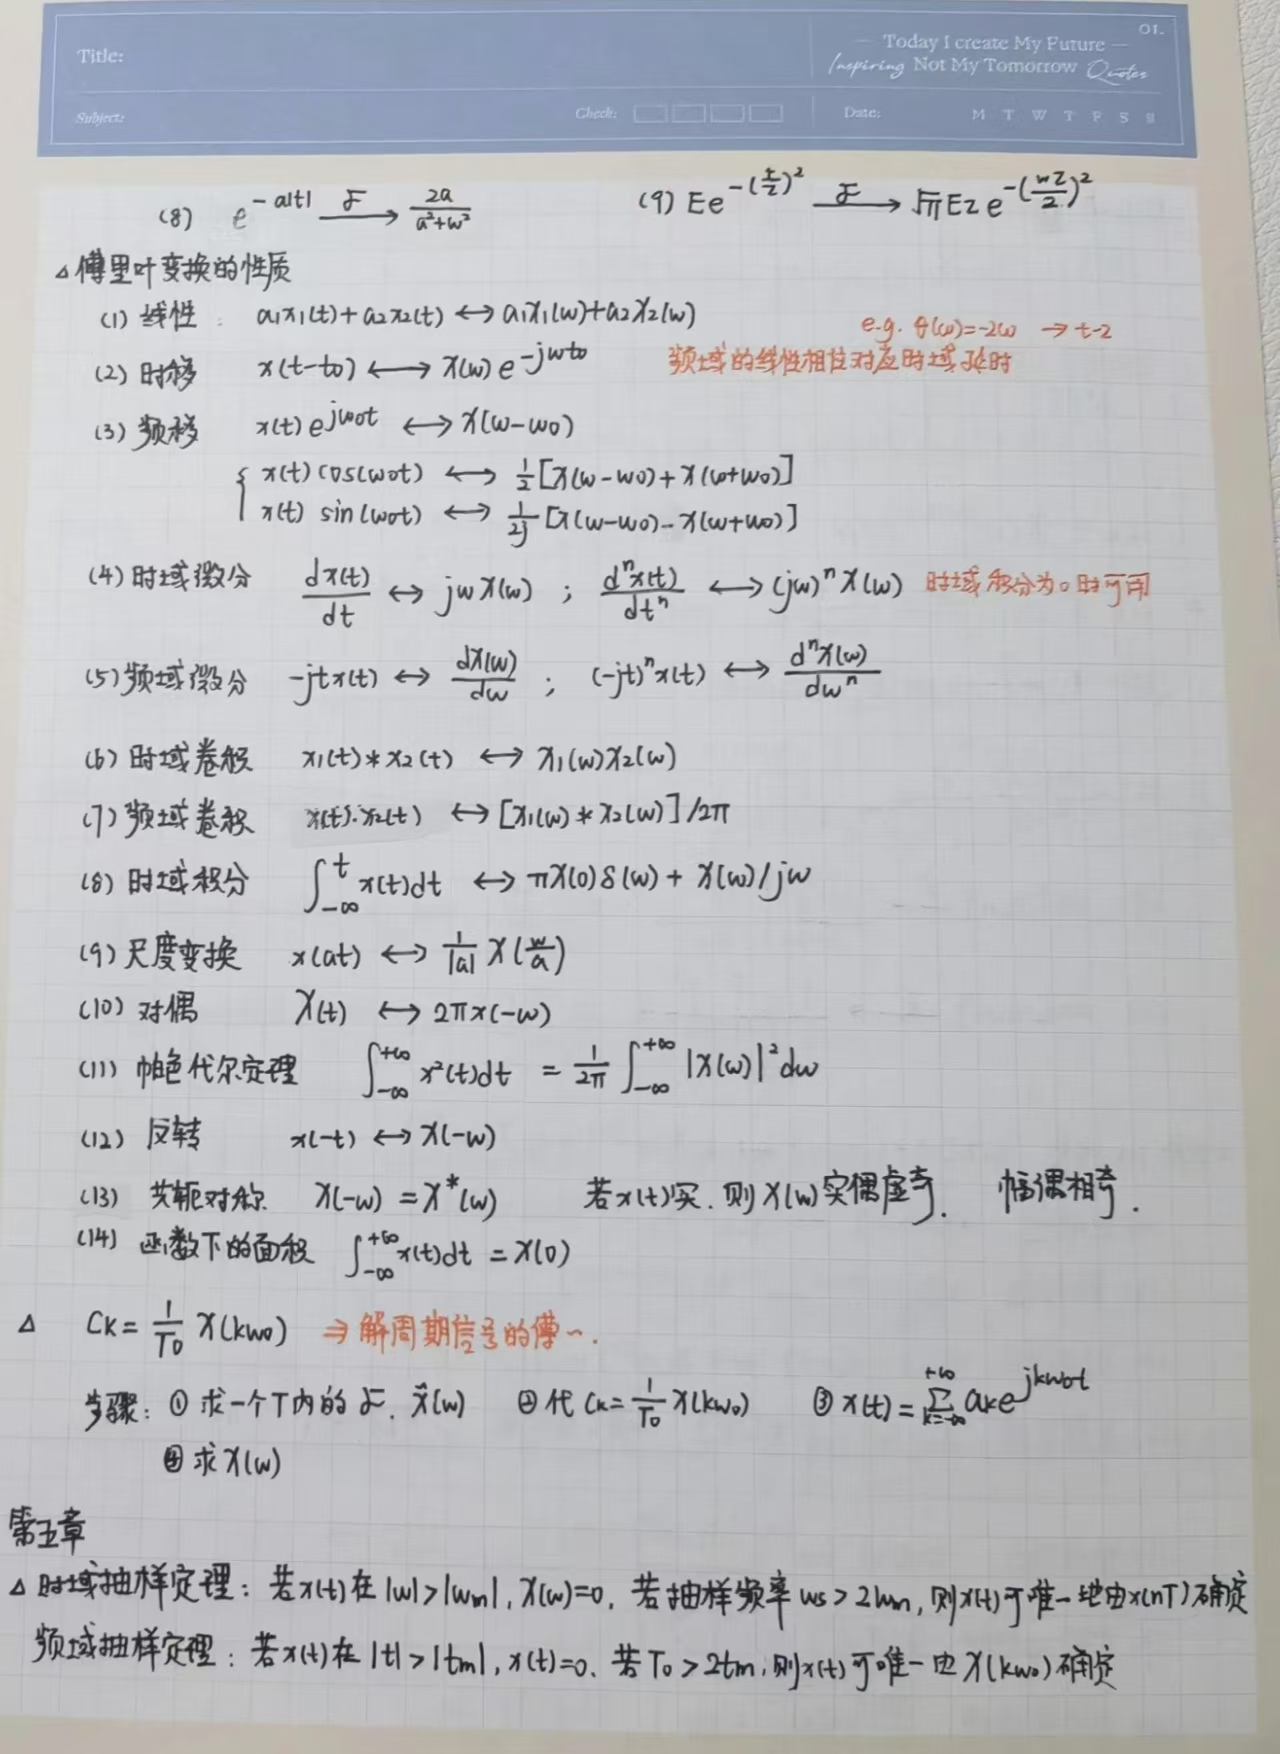 Title:
01.
— Today I create My Future —
Inspiring Not My Tomorrow Quotes
Subject:
Check:
Date:
M T W T F S S
(8) e^{-a|t|} —ℱ→ 2a/(a²+w²)
(9) Ee^{-(t/z)²} —ℱ→ √π Eze^{-(wz/2)²}
△傅里叶变换的性质
(1) 线性: a₁x₁(t)+a₂x₂(t) ↔ a₁X₁(w)+a₂X₂(w)
e.g. θ(w)=-2w → t-2
(2) 时移 x(t-t₀) ↔ X(w)e^{-jwt₀} 频域的线性相位对应时域延时
(3) 频移 x(t)e^{jw₀t} ↔ X(w-w₀)
{ x(t)cos(w₀t) ↔ 1/2[X(w-w₀)+X(w+w₀)]
x(t) sin(w₀t) ↔ 1/2j[X(w-w₀)-X(w+w₀)]
(4) 时域微分 dx(t)/dt ↔ jwX(w) ; dⁿx(t)/dtⁿ ↔ (jw)ⁿX(w) 时域积分为0时可用
(5) 频域微分 -jtx(t) ↔ dX(w)/dw ; (-jt)ⁿx(t) ↔ dⁿX(w)/dwⁿ
(6) 时域卷积 x₁(t)*x₂(t) ↔ X₁(w)X₂(w)
(7) 频域卷积 x₁(t)·x₂(t) ↔ [X₁(w)*X₂(w)]/2π
(8) 时域积分 ∫_{-∞}^{t} x(t)dt ↔ πX(0)δ(w)+X(w)/jw
(9) 尺度变换 x(at) ↔ 1/|a| X(w/a)
(10) 对偶 X(t) ↔ 2πx(-w)
(11) 帕色代尔定理 ∫_{-∞}^{+∞} x²(t)dt = 1/2π ∫_{-∞}^{+∞} |X(w)|²dw
(12) 反转 x(-t) ↔ X(-w)
(13) 共轭对称 X(-w)=X*(w) 若x(t)实.则X(w)实偶虚奇. 幅偶相奇.
(14) 函数下的面积 ∫_{-∞}^{+∞} x(t)dt=X(0)
△ Ck=1/T₀ X(kw₀) ⇒解周期信号的傅~.
步骤: ① 求一个T内的ℱ. X̃(w) ② 代 Ck=1/T₀ X(kw₀) ③ x(t)=∑_{k=-∞}^{+∞} ake^{jkw₀t}
④ 求X(w)
第五章
△ 时域抽样定理: 若x(t)在|w|>|wm|, X(w)=0. 若抽样频率ws>2wm,则x(t)可唯一地由x(nT)确定
频域抽样定理: 若x(t)在|t|>|tm|, x(t)=0. 若T₀>2tm,则x(t)可唯一由X(kw₀)确定